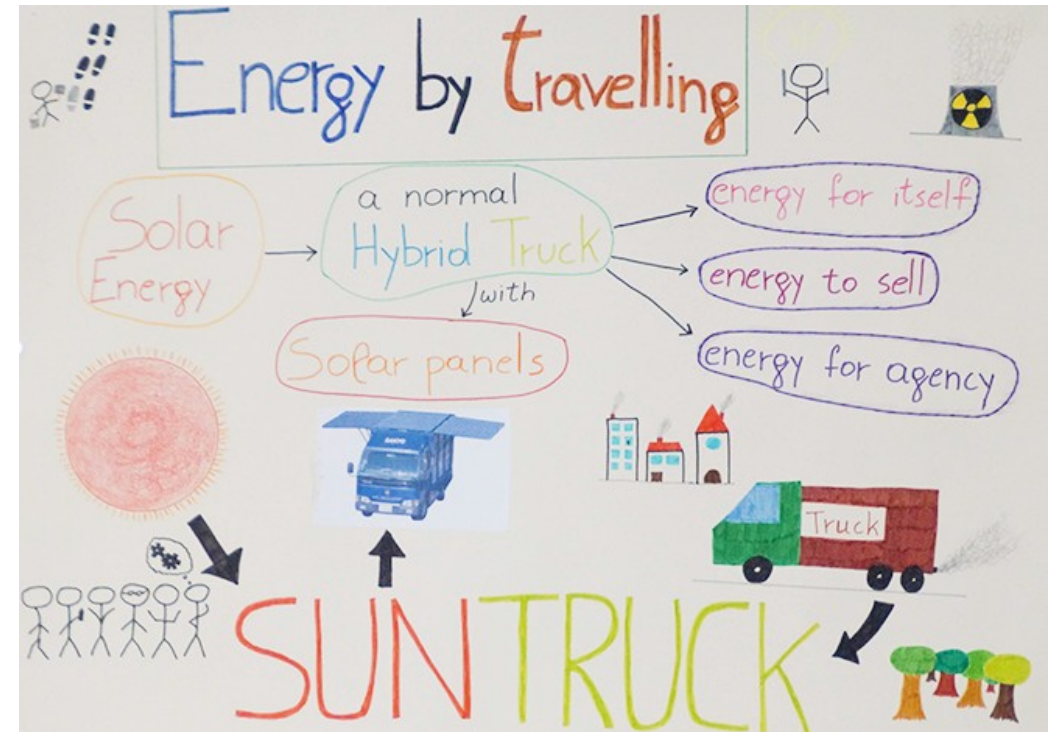 Energy by travelling
Solar
Energy
a normal
Hybrid Truck
with
Solar panels
energy for itself
energy to sell
energy for agency
Truck
SUNTRUCK